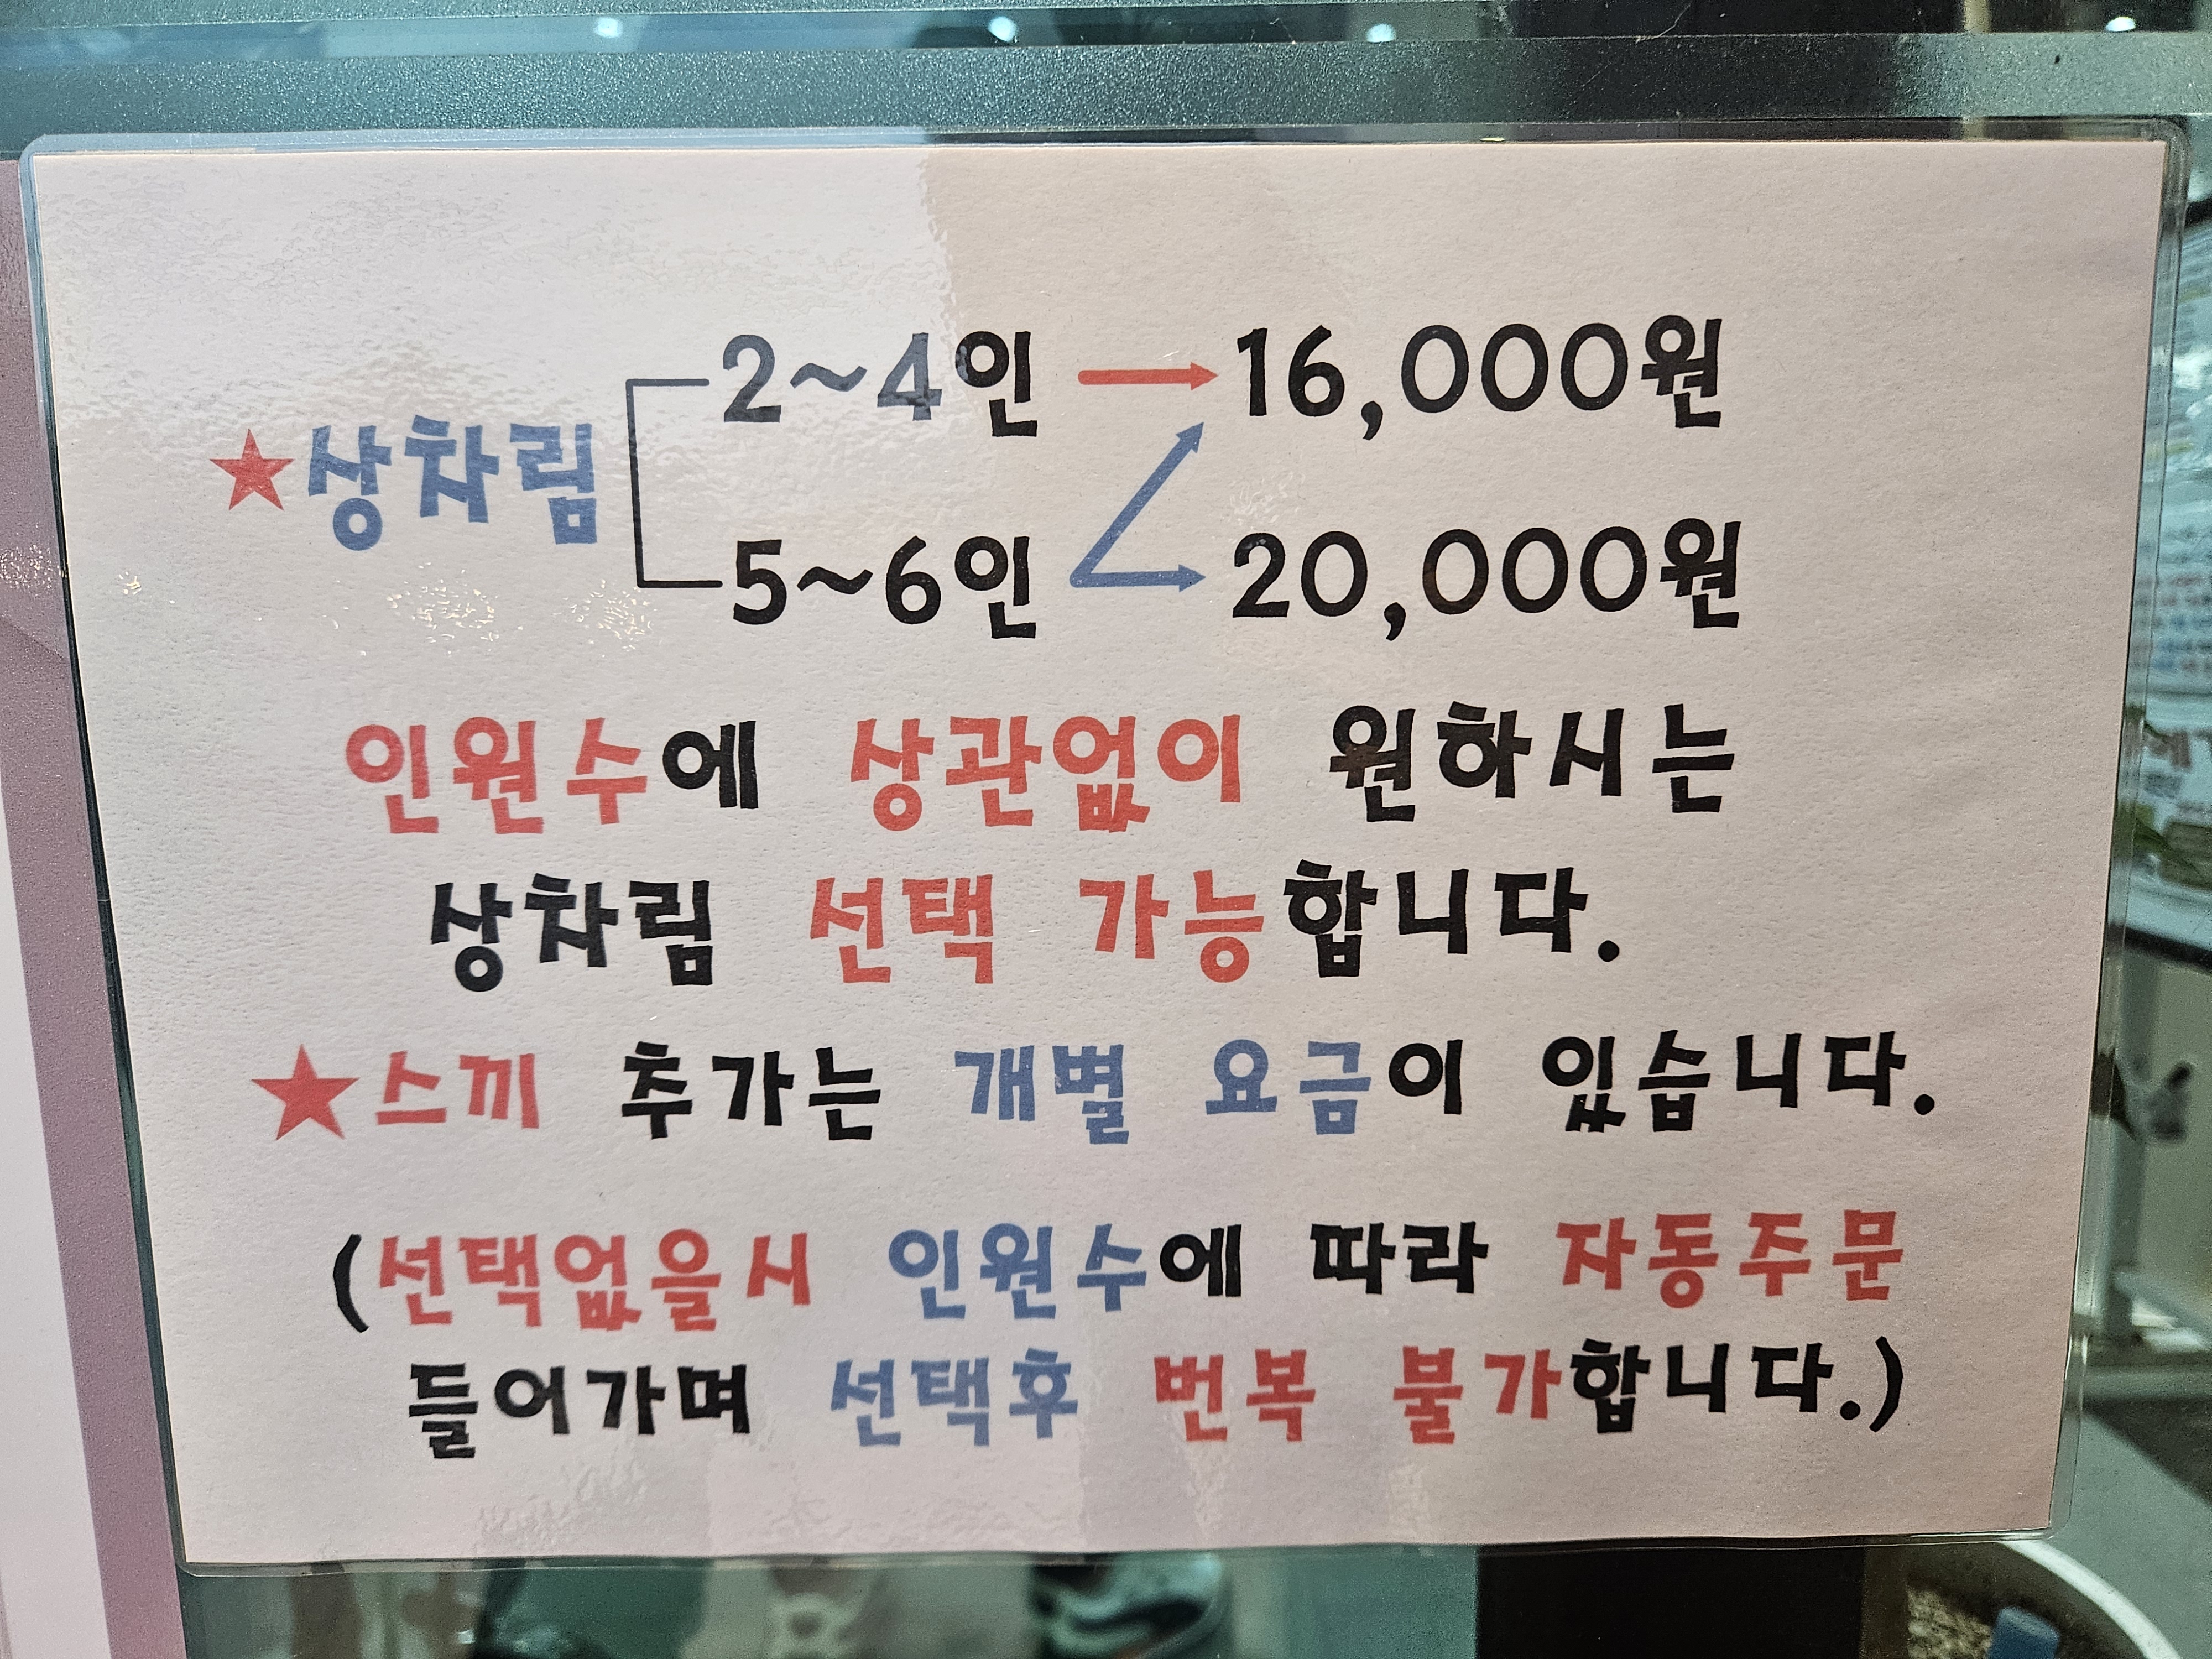 2~4인 → 16,000원
★상차림
5~6인 → 20,000원
인원수에 상관없이 원하시는
상차림 선택 가능합니다.
★스끼 추가는 개별 요금이 있습니다.
(선택없을시 인원수에 따라 자동주문
들어가며 선택후 번복 불가합니다.)